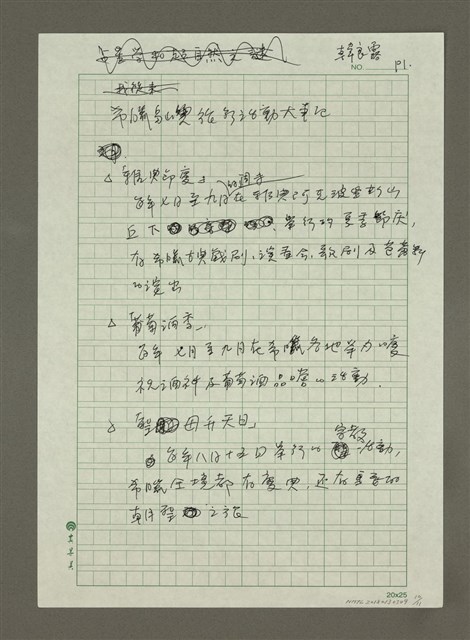 韓良露 P1.
NO.
希臘島嶼旅行活動大事記
△「雅典節慶」
每年七月至九月在雅典
丘下舉行的夏季節慶,
有希臘古典戲劇、演奏會、歌劇及芭蕾舞
的演出
△「葡萄酒季」
每年七月至九月在希臘各地舉辦的慶
祝酒神及葡萄酒品嚐的活動.
△「聖母升天日」
每年八月十五日舉行的宗教活動,
希臘全境都有慶典,還有夏季的
朝聖之旅
20x25